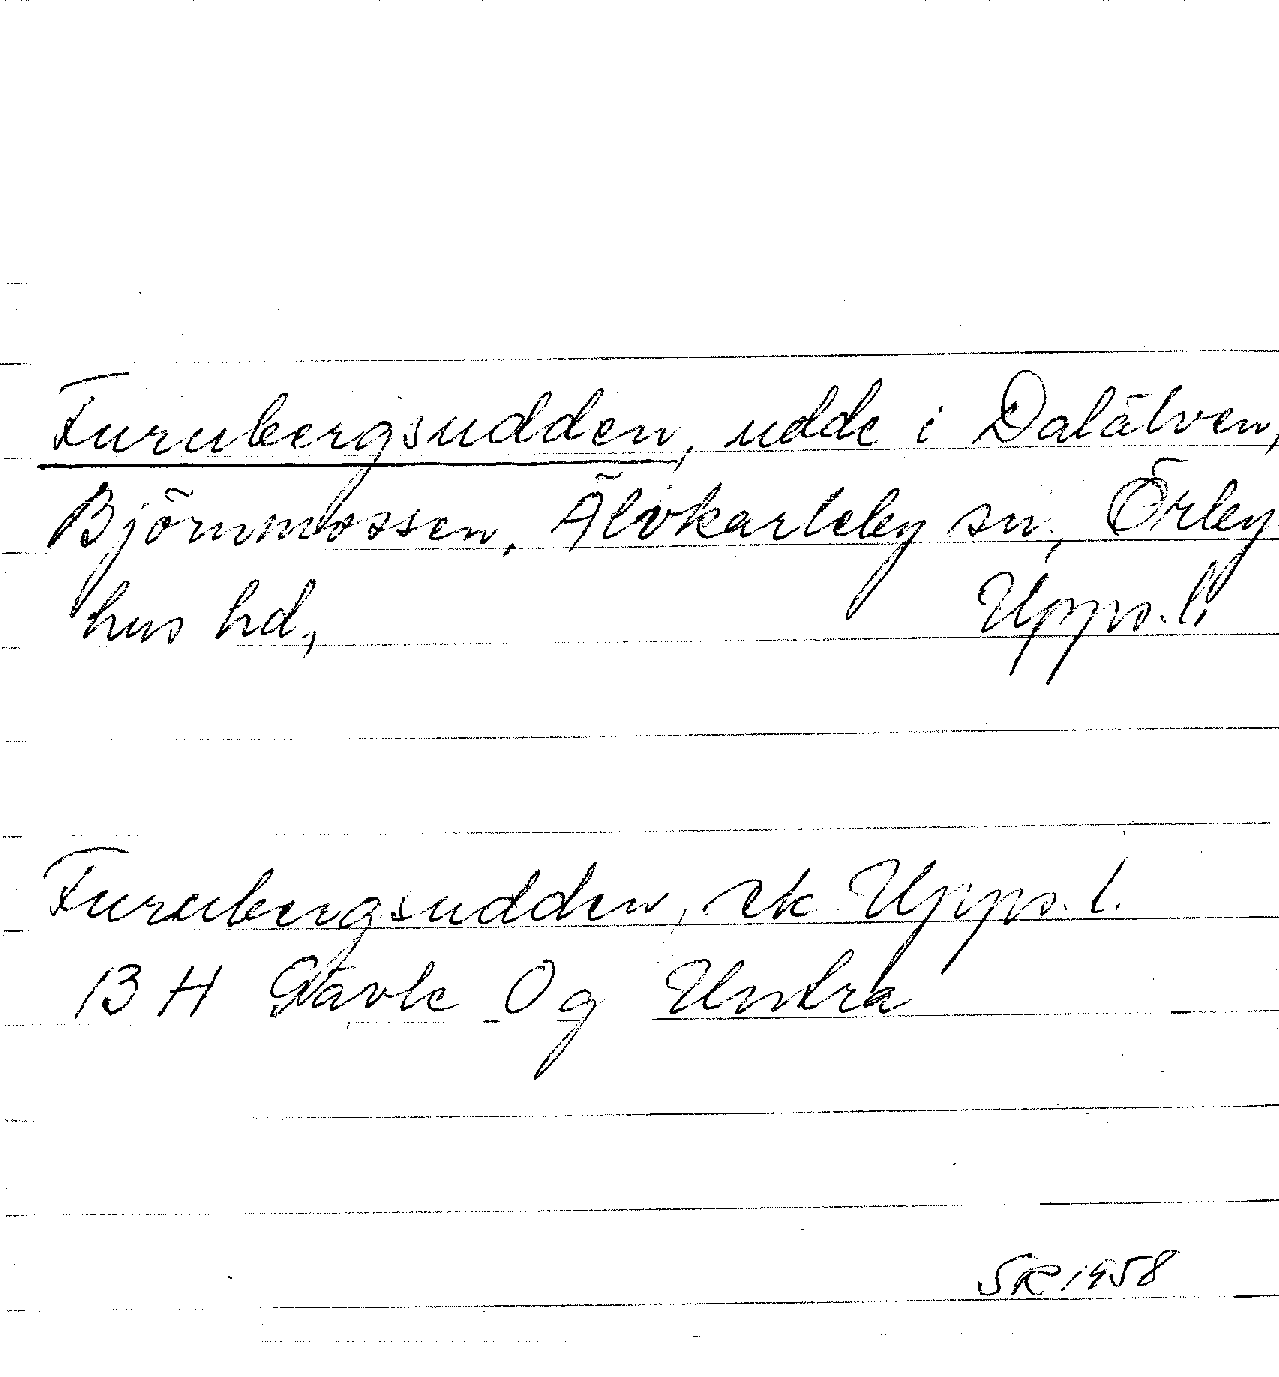 Furubergsudden, udde i Dalälven,
Björnmossen, Älvkarleby sn, Örby
hus hd, Upps. l.
Furubergsudden, ek Upps. l.
BH Gävle Og Untra
SR 1958